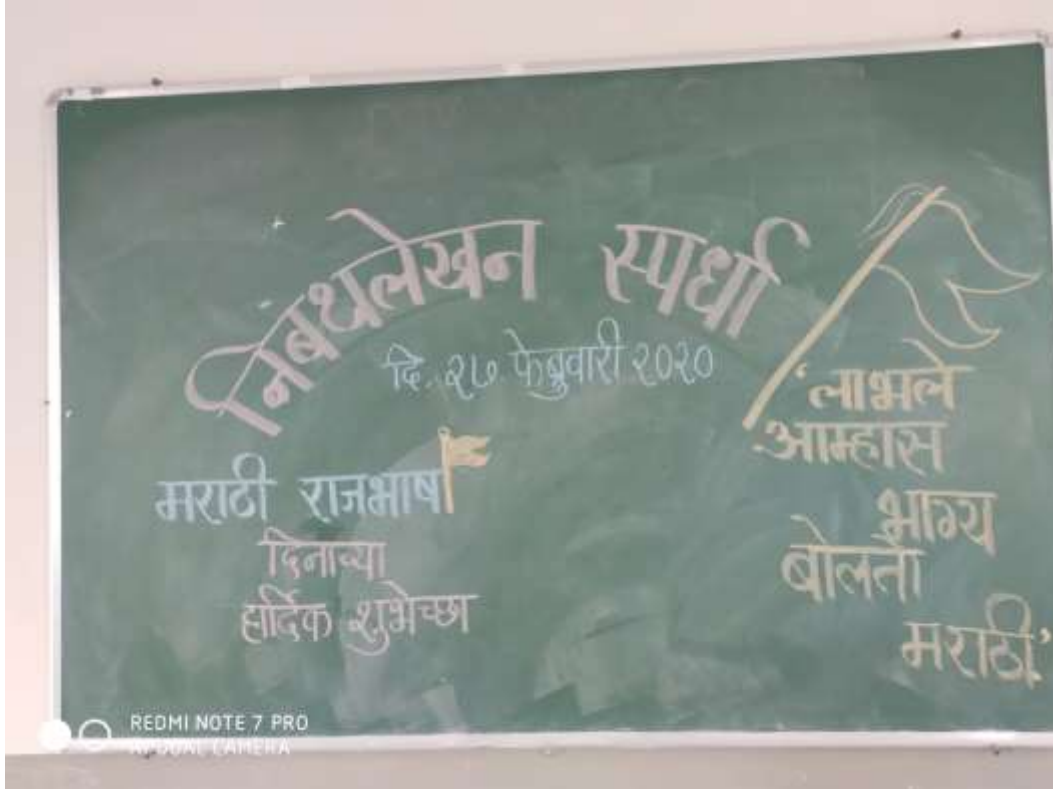 निबंधलेखन स्पर्धा
दि. २७ फेब्रुवारी २०२०
मराठी राजभाषा
दिनाच्या
हार्दिक शुभेच्छा
'लाभले
आम्हास
भाग्य
बोलतो
मराठी'
REDMI NOTE 7 PRO
AI DUAL CAMERA